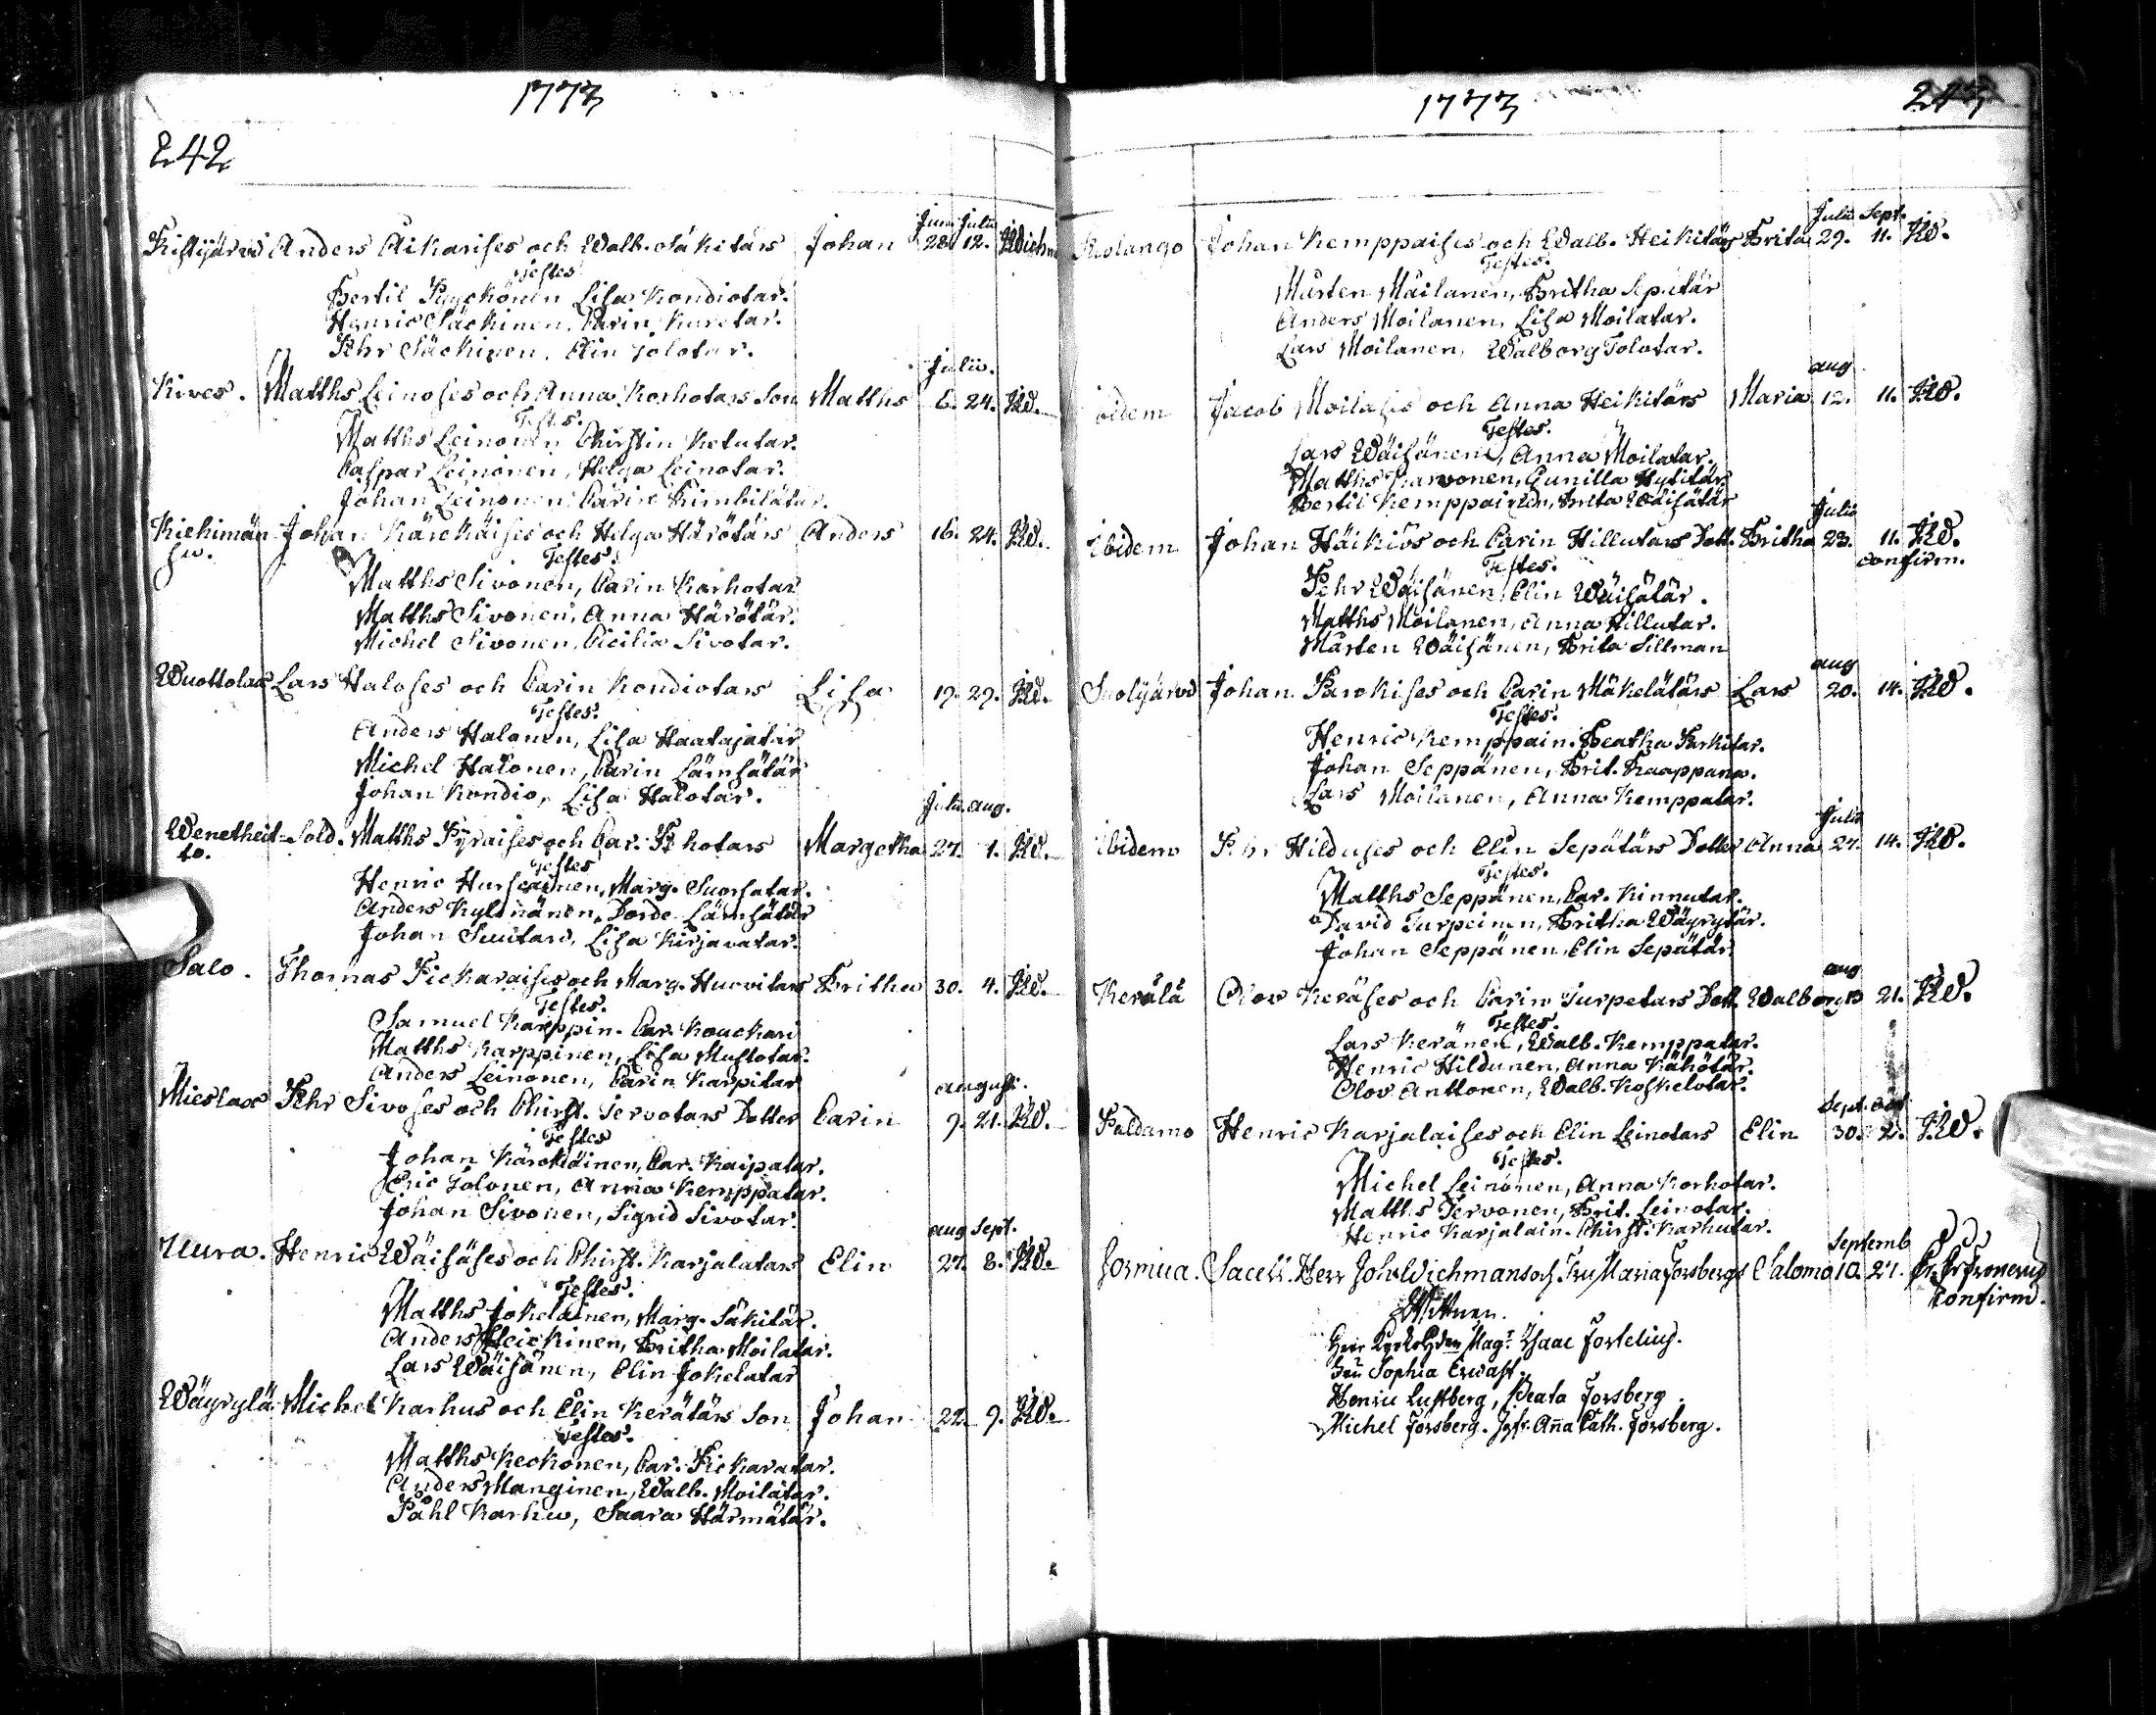 1773
242
Junii Julii
Kistijärvi Anders Aikarises och Walb. Säkitärs Johan 28. 12. JWichm
Testes
Bertil Pyyckönen Lisa Kondiotar.
Henric Säckinen, Carin Kuretar.
Pehr Säckinen, Elin Tolotar.
Julii.
Kives. Matths Leinoses och Anna Korhotars Son Matths 6. 24. JW.
Testes.
Matths Leinonen Christin Ketutar.
Caspar Leinonen, Helga Leinotar.
Johan Leinonen Carin Kimbilätar.
Kiehimän Johan Kärckäises och Helga Härötärs Anders 16. 24. JW.
su. Testes.
Matths Sivonen, Carin Korhotar
Matths Sivonen, Anna Härötär.
Michel Sivonen, Cicilia Sivotar.
Wuottolax Lars Haloses och Carin Kondiotars Lisa 19. 29. JW.
Testes.
Anders Halonen, Lisa Haatajatar
Michel Halonen, Carin Lämsätär
Johan Kondio, Lisa Halotar.
Julii aug.
Wenetheit= Sold. Matths Pyraises och Car. Pi hotars Margetha 27. 1. JW.
to. Testes
Henric Hurscainen, Marg. Suorsatar.
Anders Kylmänen, Dorde Lämsätär
Johan Suutari, Lisa Kirjavatar.
Salo. Thomas Pickaraises och Marg. Huovitars Britha 30. 4. JW.
Testes.
Samuel Karppin. Car. Kouckari
Matths Karppinen, Lisa Mustotar.
Anders Leinonen, Carin Karpitar
august.
Mieslax Pehr Sivoses och Christ. Tervotars Dotter Carin 9. 21. JW.
Testes
Johan Kärckäinen, Car. Kaipatar.
Eric Tolonen, Anna Kemppatar.
Johan Sivonen, Sigrid Sivotar.
aug Sept.
Uura. Henric Wäisäses och Christ. Karjalatars Elin 27. 8. JW.
Testes.
Matths Jokelainen, Marg. Säkitär.
Anders Heickinen, Britha Moilatar.
Lars Wäisänen, Elin Jokelatar
Wäyrylä Michel Karhus och Elin Kerätärs Son Johan 22. 9. JW.
Testes.
Matths Keckonen, Car. Pickaratar.
Anders Manginen, Walb. Moilatar.
Påhl Karhu, Saara Härmätär.
1773
243
Julii Sept.
Ristango Johan Kemppaises och Walb. Heikitärs Brita 29. 11. JW.
Testes.
Mårten Mäilanen, Britha Sepätär
Anders Moilanen, Lisa Moilatar.
Lars Moilanen, Walborg Tolotar.
aug
ibidem Jacob Moilases och Anna Heikitärs Maria 12. 11. JW.
Testes.
Lars Wäisänen, Anna Moilatar.
Matths Karvonen, Gunilla Hytitär
Bertil Kemppainen, Brita Wäisätär
Julii
Ibidem Johan Häikiös och Carin Hillutars Dott. Britha 23. 11. JW.
confirm.
Testes.
Pehr Wäisänen, Elin Wäisätär.
Matths Moilanen, Anna Hillutar.
Mårten Wäisänen, Brita Sillman
aug
Suolijärvi Johan Parckises och Carin Mäkelätärs Lars 20. 14. JW.
Testes.
Henric Kemppain. Beatha Parkitar.
Johan Seppänen, Brit. Kaappana.
Lars Moilanen, Anna Kemppatar.
Julii
Ibidem Pehr Hilduses och Elin Sepätärs Dotter Anna 27. 14. JW.
Testes.
Matths Seppänen, Car. Kinnutar.
David Turpeinen, Britha Wäyrytär.
Johan Seppänen, Elin Sepätär
aug
Kerälä Olov Keräses och Carin Turpetars Dott. Walborg 13 21. JW.
Testes.
Lars Keränen, Walb. Kemppatar.
Henric Hildunen, Anna Kähötär.
Olov Anttonen, Walb. Koskelotar.
Sept. Oct
Paldamo Henric Karjalaises och Elin Leinotars Elin 30. 2. JW.
Testes.
Michel Leinonen, Anna Korhotar.
Matths Tervonen, Brit. Leinotar.
Henric Karjalain. Christ. Karhutar.
Septemb
Jormua. Sacell. Herr Joh. Wichmans och Fru Maria Forsbergs Salomo 10. 27.
Confirm.
Wittnen.
Herr Kyrkoherden Mag:r Isaac Fortelius.
Fru Sophia Erwast.
Henric Luftberg, Beata Forsberg.
Michel Forsberg. Jgfr. Anna Cath. Forsberg.